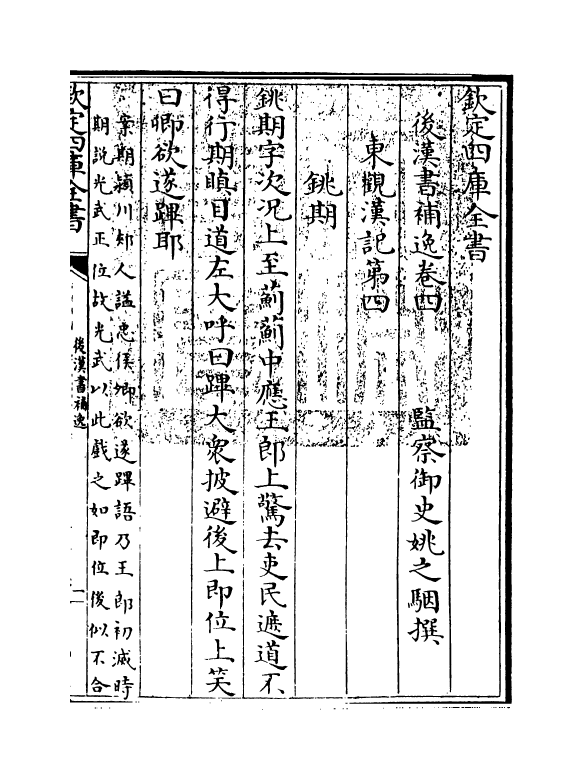 欽定四庫全書
後漢書補逸卷四　監察御史姚之駰撰
東觀漢記第四
銚期
銚期字次况上至薊薊中應王郎上驚去吏民遮道不
得行期瞋目道左大呼曰䟆大衆披避後上即位上笑
曰卿欲遂䟆耶
案期潁川郟人諡忠侯卿欲遂䟆語乃王郎初滅時
期說光武正位故光武以此戲之如即位後似不合
欽定四庫全書
後漢書補逸